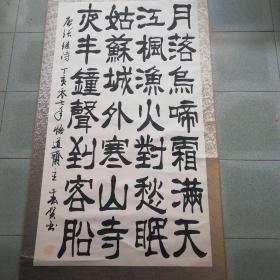 月落烏啼霜滿天
江楓漁火對愁眠
姑蘇城外寒山寺
夜半鐘聲到客船
唐張繼詩 丁亥